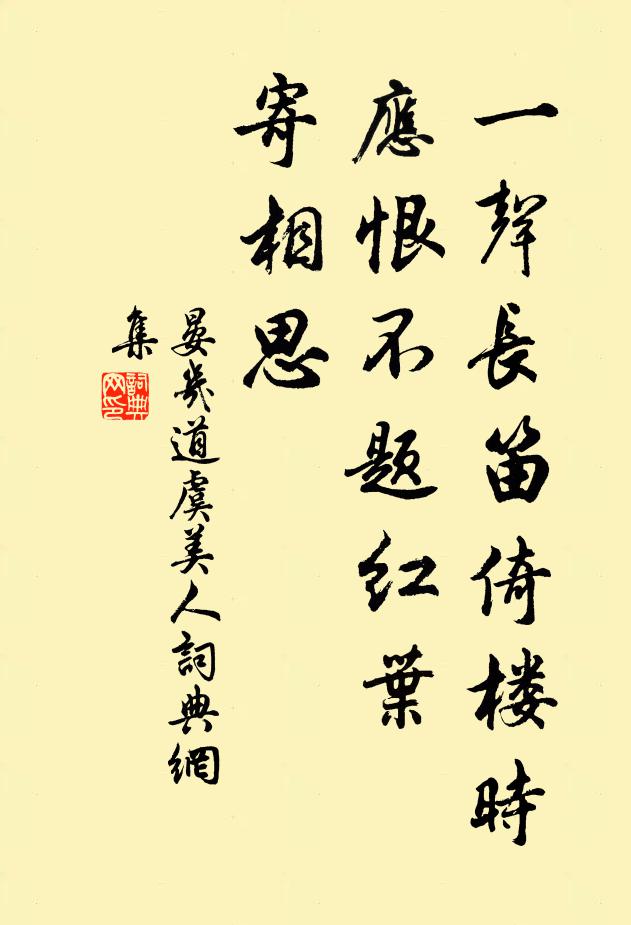 一聲長笛倚楼時
應恨不题红葉
寄相思
晏幾道虞美人詞典網
集
詞典
网印